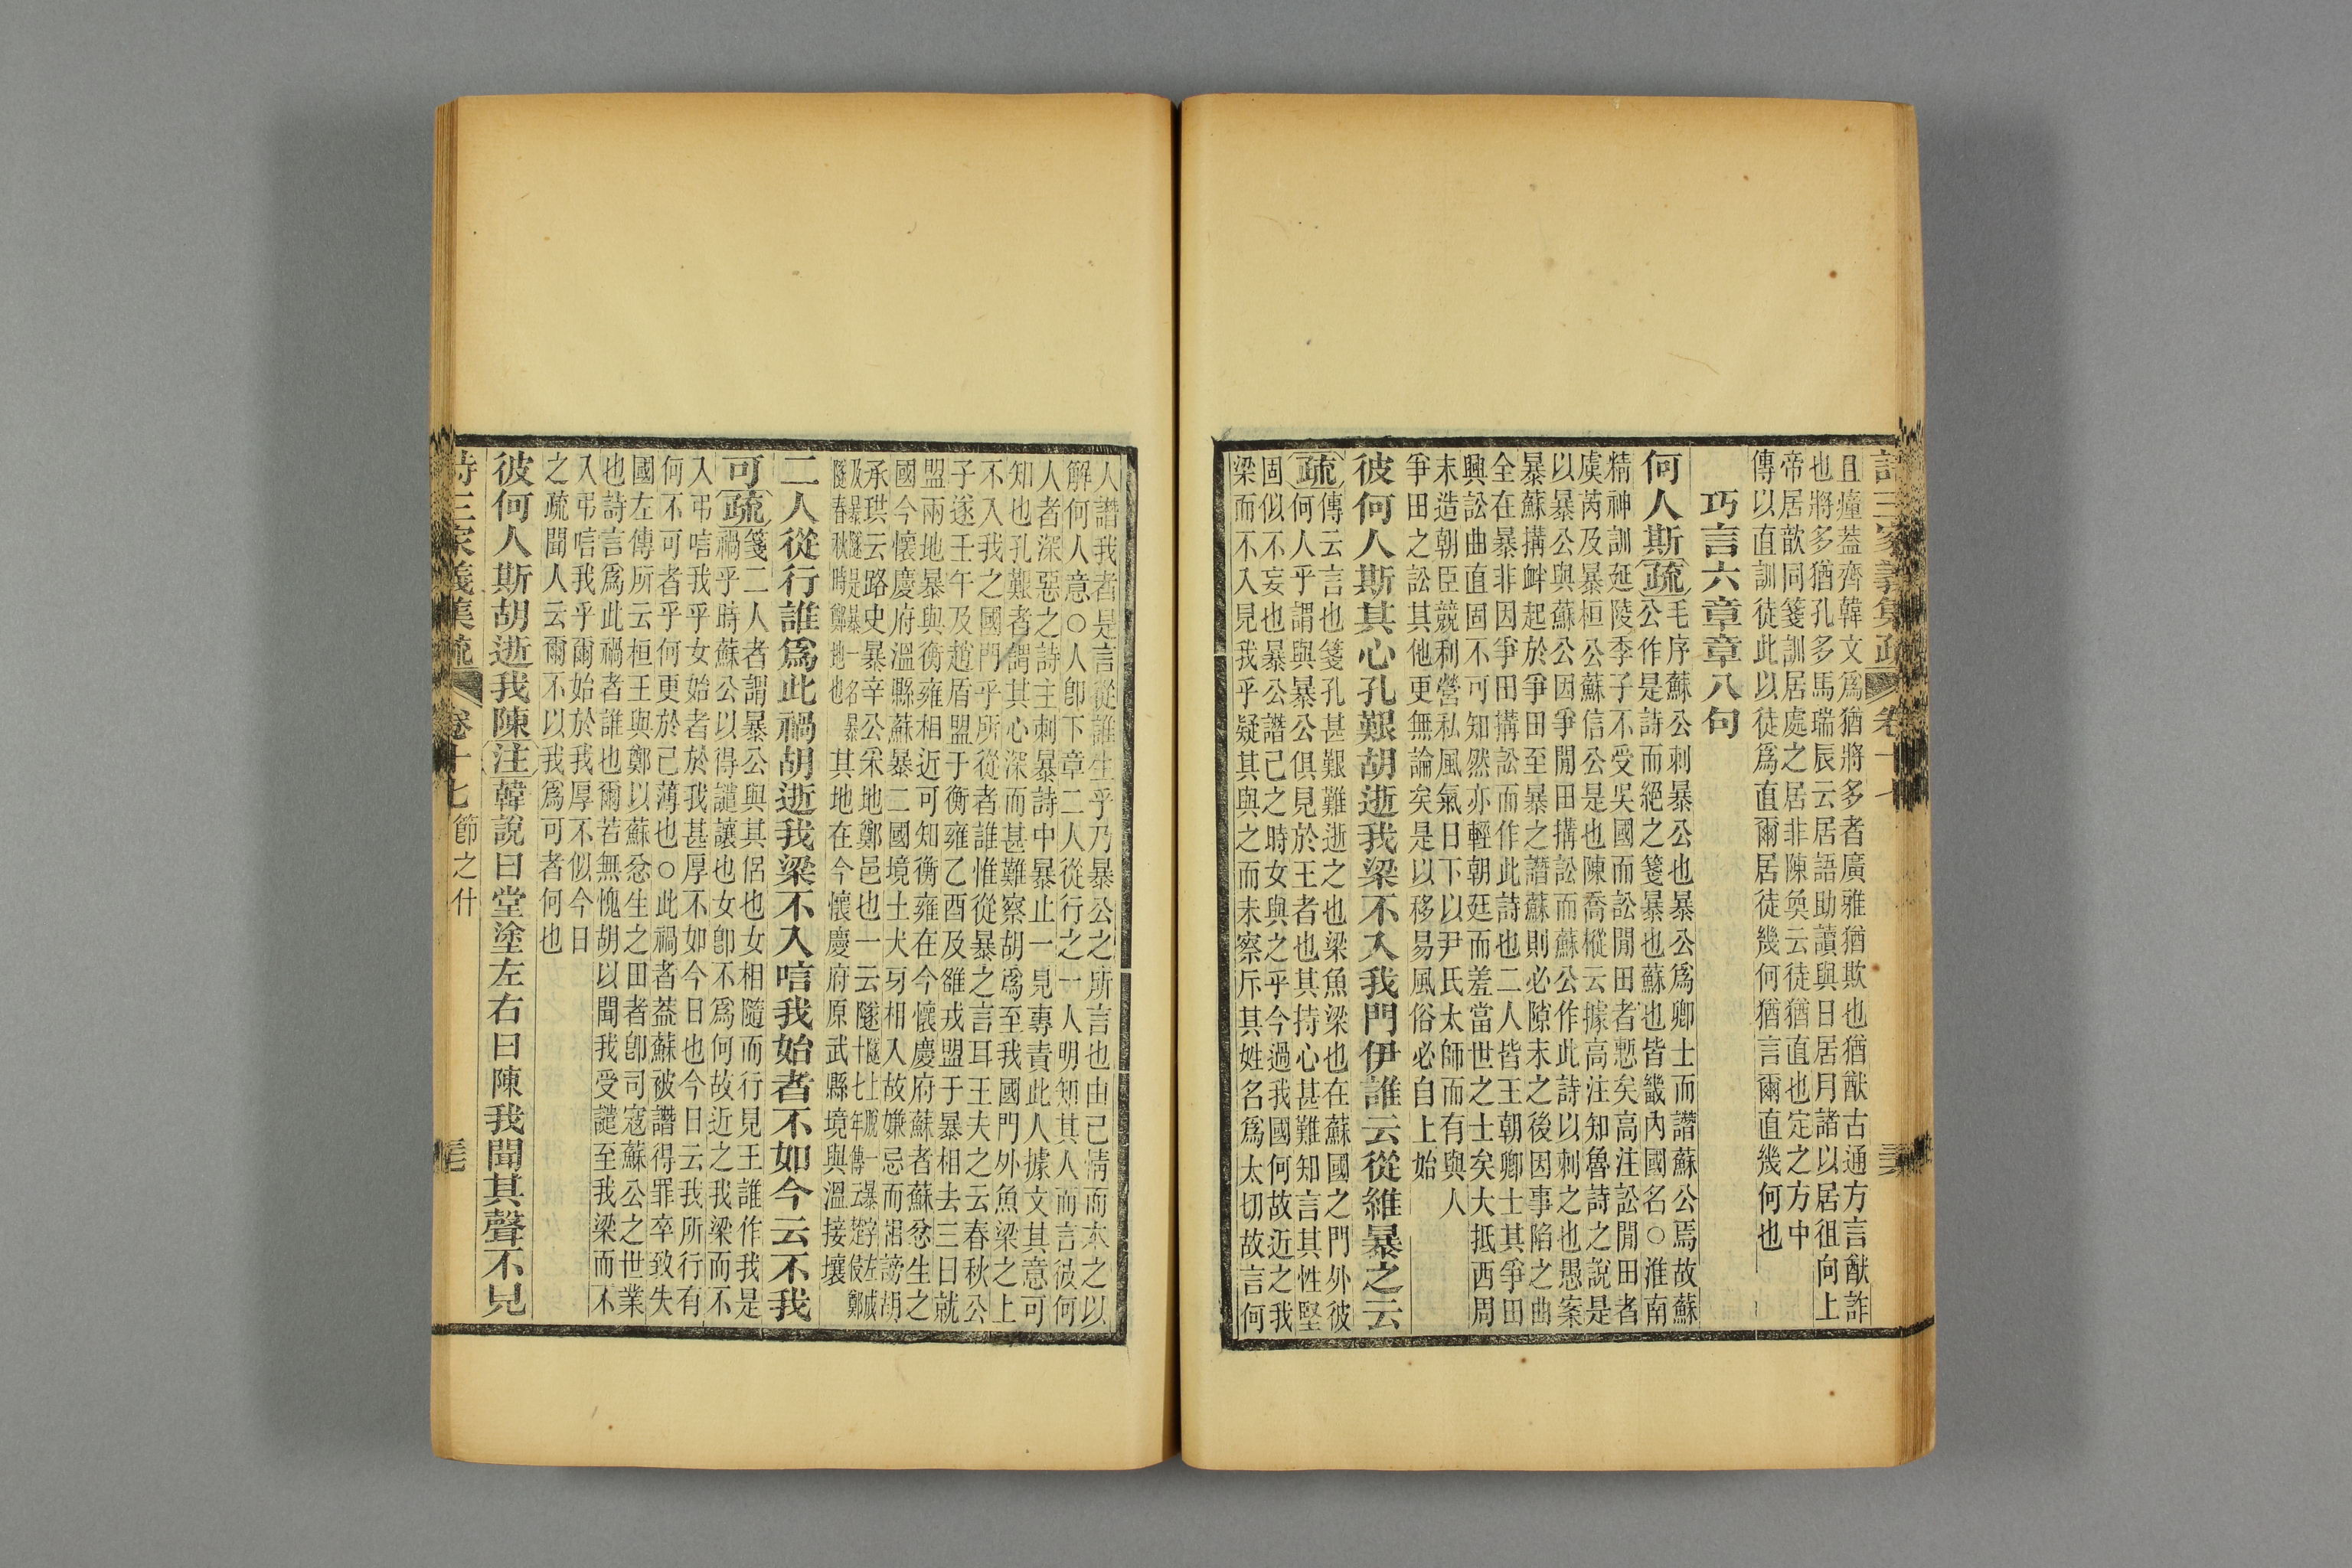 且瘇蓋齊韓文爲猶將多者廣雅猶欺也猶猷古通方言猷詐
也將多猶孔多馬瑞辰云居語助讀與日居月諸以居徂向上
帝居歆同箋訓居處之居非陳奐云徒猶直也定之方中
傳以直訓徒此以徒爲直爾居徒幾何猶言爾直幾何也
巧言六章章八句
何人斯疏毛序蘇公刺暴公也暴公爲卿士而譖蘇公焉故蘇
公作是詩而絕之箋暴也蘇也皆畿內國名○淮南
精神訓延陵季子不受吳國而訟閒田者慙矣高注訟閒田者
虞芮及暴桓公蘇信公是也陳喬樅云據高注知魯詩之說是
以暴公與蘇公因爭閒田搆訟而蘇公作此詩以刺之也愚案
暴蘇搆衅起於爭田至暴之譖蘇則必隙末之後因事陷之曲
全在暴非因爭田搆訟而作此詩也二人皆王朝卿士其爭田
興訟曲直固不可知然亦輕朝廷而羞當世之士矣大抵西周
末造朝臣競利營私風氣日下以尹氏太師而有與人
爭田之訟其他更無論矣是以移易風俗必自上始
彼何人斯其心孔艱胡逝我梁不入我門伊誰云從維暴之云
疏傳云言也箋孔甚艱難逝之也梁魚梁也在蘇國之門外彼
何人乎謂與暴公俱見於王者也其持心甚難知言其性堅
固似不妄也暴公譖己之時女與之乎今過我國何故近之我
梁而不入見我乎疑其與之而未察斥其姓名爲太切故言何
人譖我者是言從誰生乎乃暴公之所言也由己情而本之以
解何人意○人卽下章二人從行之一人明知其人而言彼何
人者深惡之詩主刺暴詩中暴止一見專責此人據文其意可
知也孔艱者謂其心深而甚難察胡爲至我國門外魚梁之上
不入我之國門乎所從者誰惟從暴之言耳王夫之云春秋公
子遂壬午及趙盾盟于衡雍乙酉及雒戎盟于暴相去三日就
盟兩地暴與衡雍相近可知衡雍在今懷慶府蘇者蘇忿生之
國今懷慶府溫縣蘇暴二國境土犬牙相入故嫌忌而詛謗胡
承珙云路史暴辛公采地鄭邑也一云隧
其地在今懷慶府原武縣境與溫接壤
二人從行誰爲此禍胡逝我梁不入唁我始者不如今云不我
可疏箋二人者謂暴公與其侶也女相隨而行見王誰作我是
禍乎時蘇公以得譴讓也女卽不爲何故近之我梁而不
入弔唁我乎女始者於我甚厚不如今日也今日云我所行有
何不可者乎何更於己薄也○此禍者蓋蘇被譖得罪卒致失
國左傳所云桓王與鄭以蘇忿生之田者卽司寇蘇公之世業
也詩言爲此禍者誰也爾若無愧胡以聞我受譴至我梁而不
入弔唁我乎爾始於我厚不似今日
之疏聞人云爾不以我爲可者何也
彼何人斯胡逝我陳注韓說曰堂塗左右曰陳我聞其聲不見
詩三家義集疏 卷十七 節之什